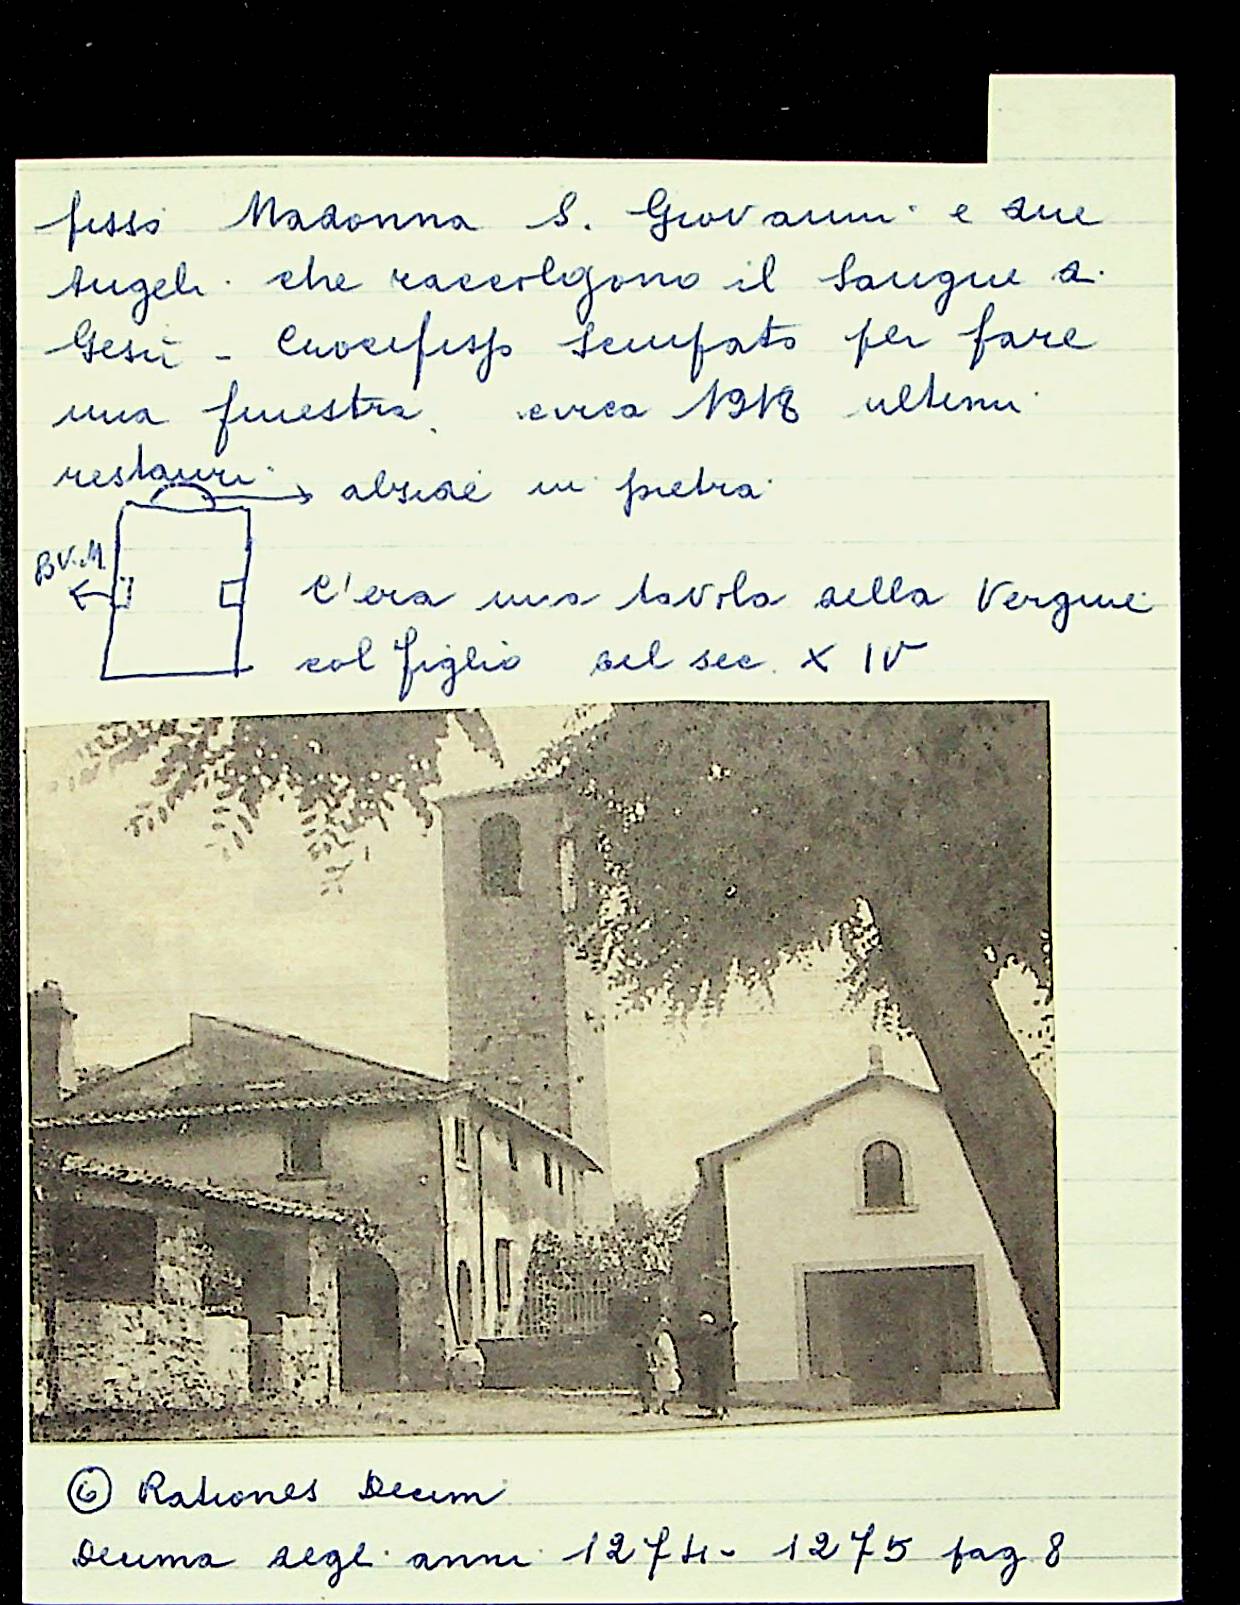 fisso Madonna S. Giovanni e due
Angeli che raccolgono il Sangue di
Gesù - Crocifisso sciupato per fare
una finestra. circa 1918 ultimi
restauri
abside in pietra
B.V.M
C'era una tavola della Vergine
col figlio del sec. XIV
⑥ Rationes Decim
Decima degli anni 1274 - 1275 pag 8